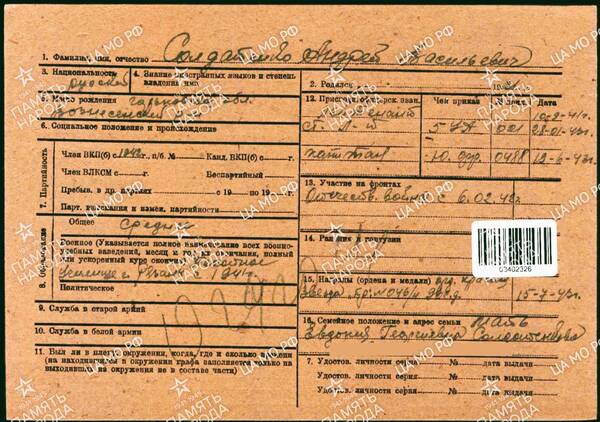 1. Фамилия, имя, отчество Андрей Васильевич
2. Родился
3. Национальность русский
4. Знание иностранных языков и степень владения ими
5. Место рождения Горьковская обл.
Вознесенский
6. Социальное положение и происхождение
7. Партийность
Член ВКП(б) с 1942 г., п/б. № Канд. ВКП(б) с г.
Член ВЛКСМ с г. Беспартийный
Пребыв. в др. партиях с 19 по 19 г.
Парт. взыскания и измен. партийности
8. Образование
Общее средн
Военное (Указывается полное наименование всех военно-
учебных заведений, месяц и год их окончания, полный
или ускоренный курс окончил) Пехотное
училище г. Рязань с 1941 г.
Политическое
9. Служба в старой армии
10. Служба в белой армии
11. Был ли в плену, окружении, когда, где и сколько времени
(на находившихся в окружении графа заполняется только на
выходивших из окружения не в составе части)
12. Присвоен. воен. зван. Чем приказ № приказа Дата
Лейтенант
ст. л-т 5 УА 001 28-01-43г.
капитан 10. 0488 12-6-43г.
13. Участие на фронтах
Отечеств. война с 6.02.42г.
14. Ранения и контузии
03402326
15. Награды (ордена и медали) орд. Красн
звезда 15-7-43г.
16. Семейное положение и адрес семьи мать
Евдокия Георгиевна
7. Удостов. личности серия № дата выдачи
Удостов. личности серия № дата выдачи
Удостов. личности серия № дата выдачи
ПАМЯТЬ НАРОДА
ЦА МО РФ